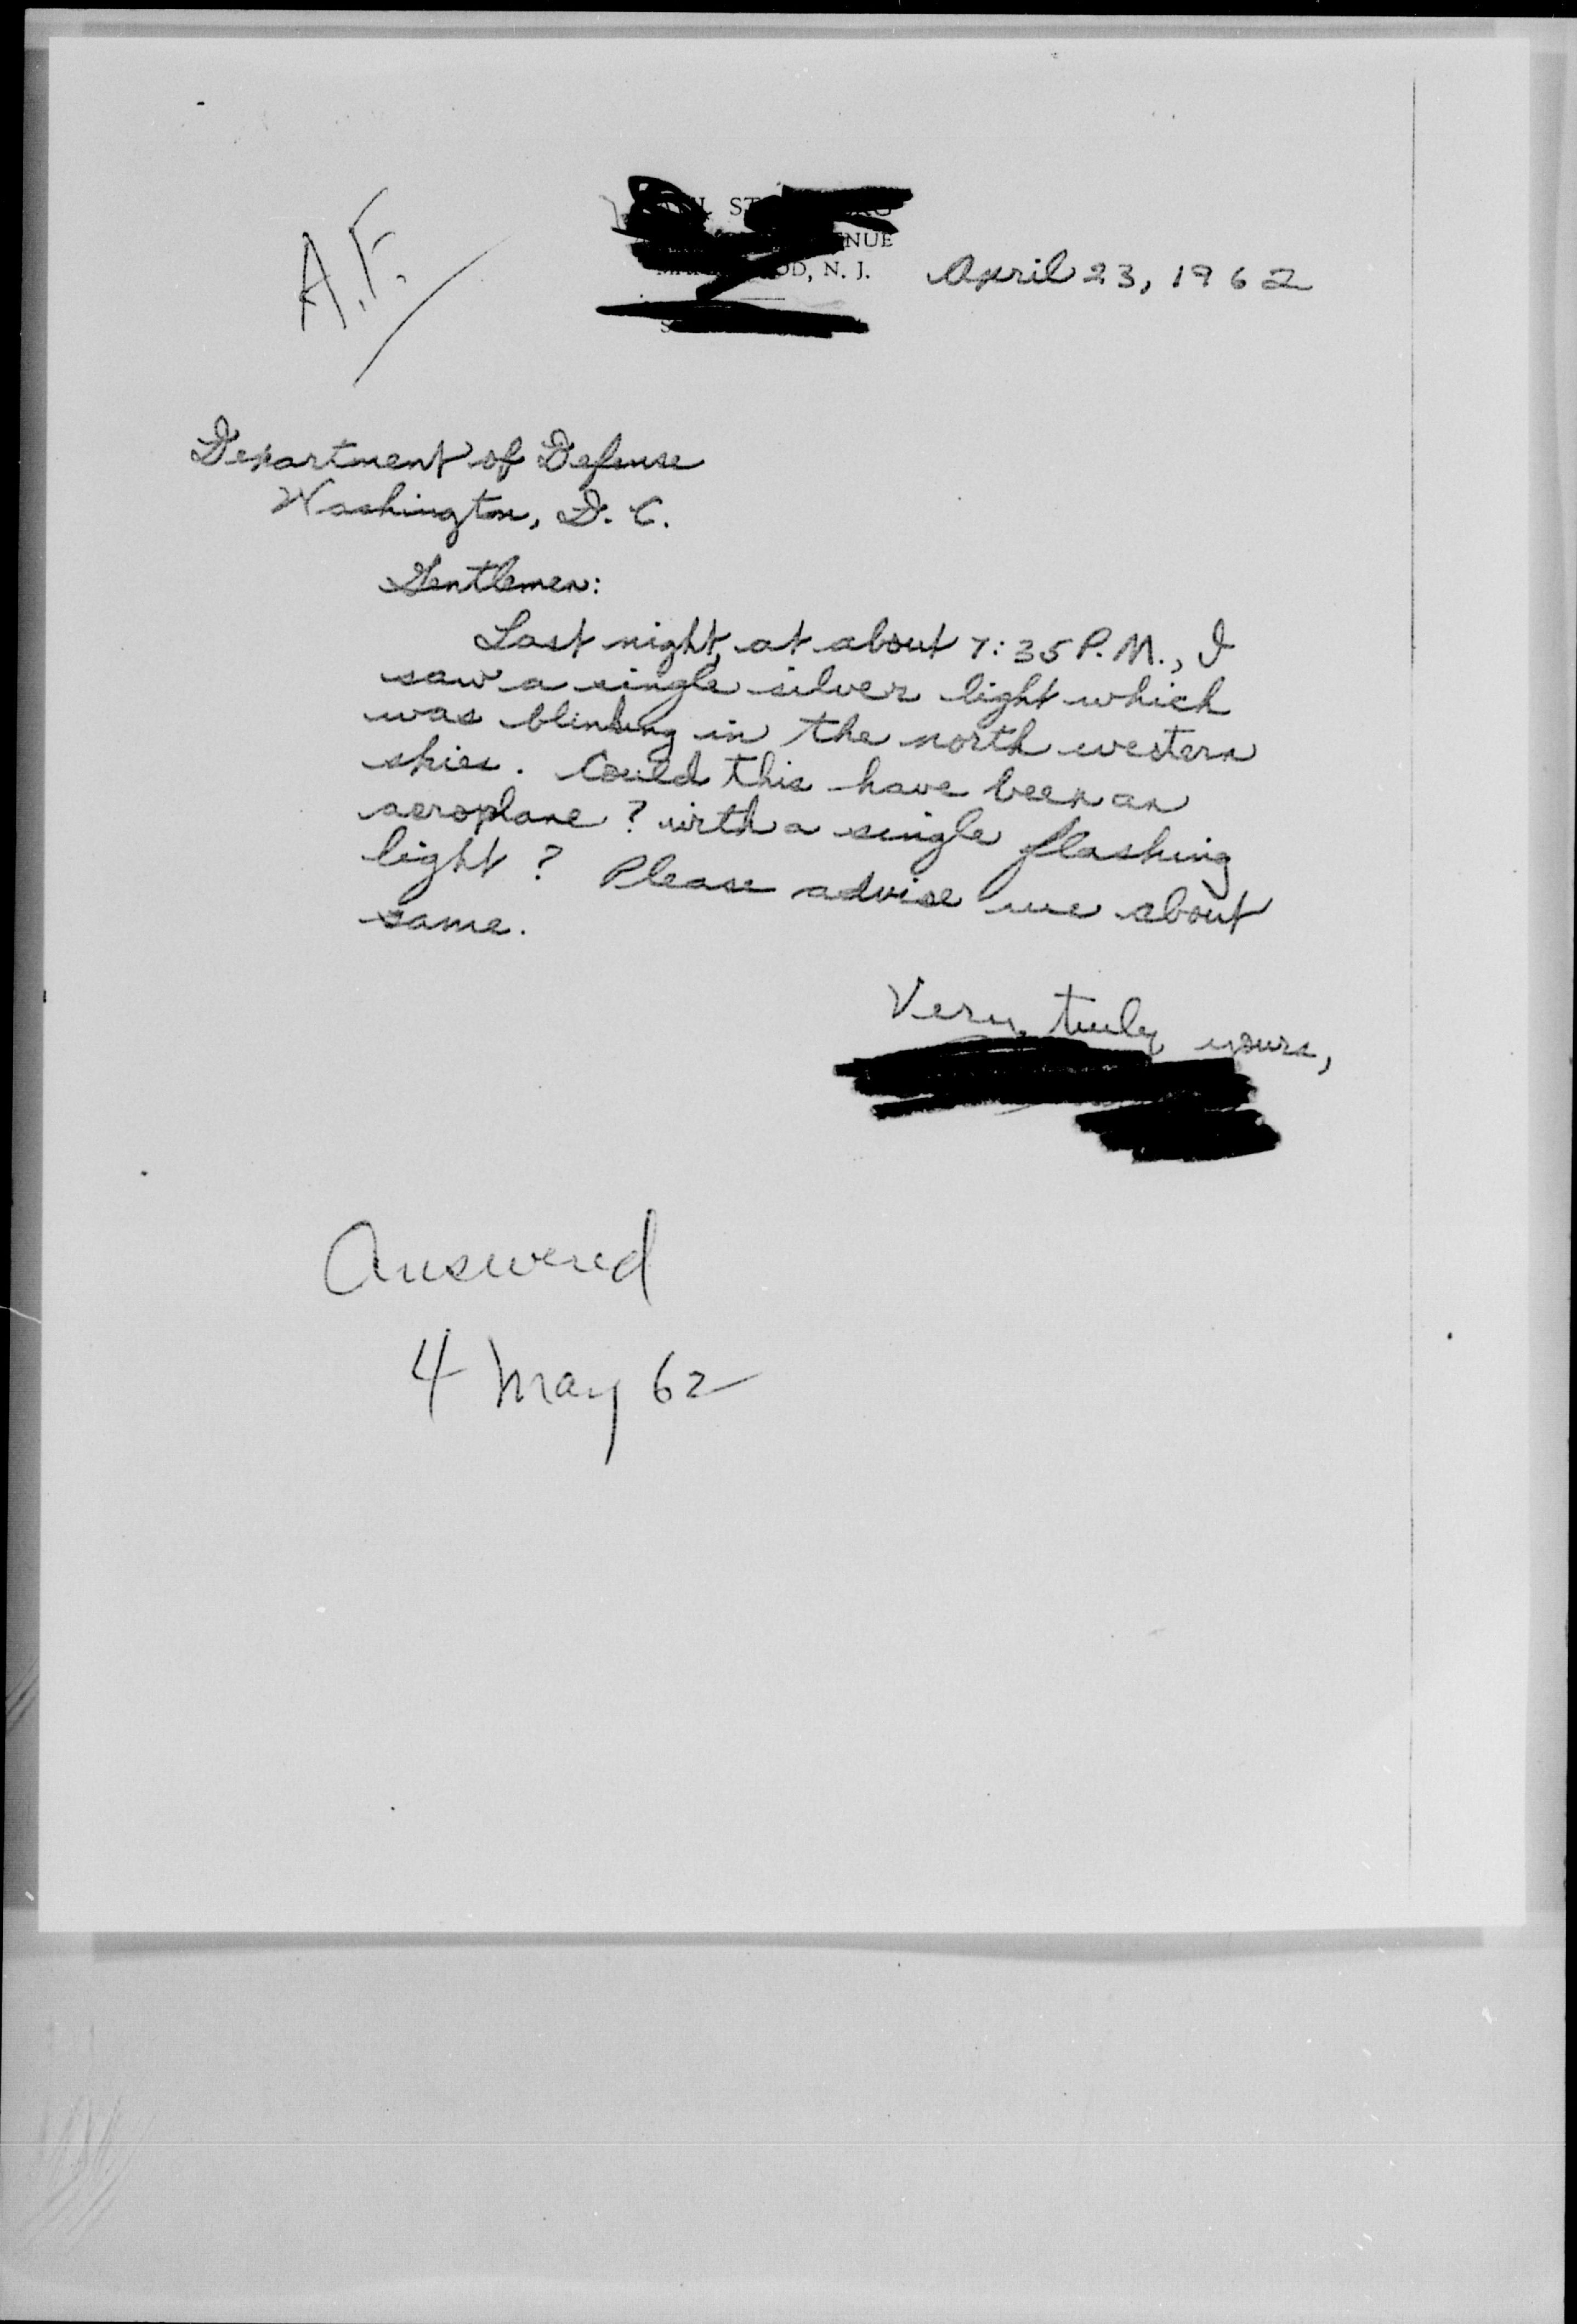 A.F.
NUE
N. J.
April 23, 1962
Department of Defense
Washington, D. C.
Gentlemen:
Last night, at about 7:35 P.M., I
saw a single silver light which
was blinking in the north western
skies. Could this have been an
aeroplane? with a single flashing
light? Please advise me about
same.
Very truly yours,
Answered
4 May 62